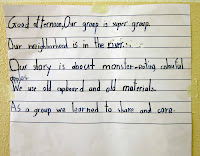 Good afternoon, Our group is super group.
Our neighborhood is in the river.
Our story is about monster-eating colourful
We use old cupboard and old materials.
As a group we learned to share and care.